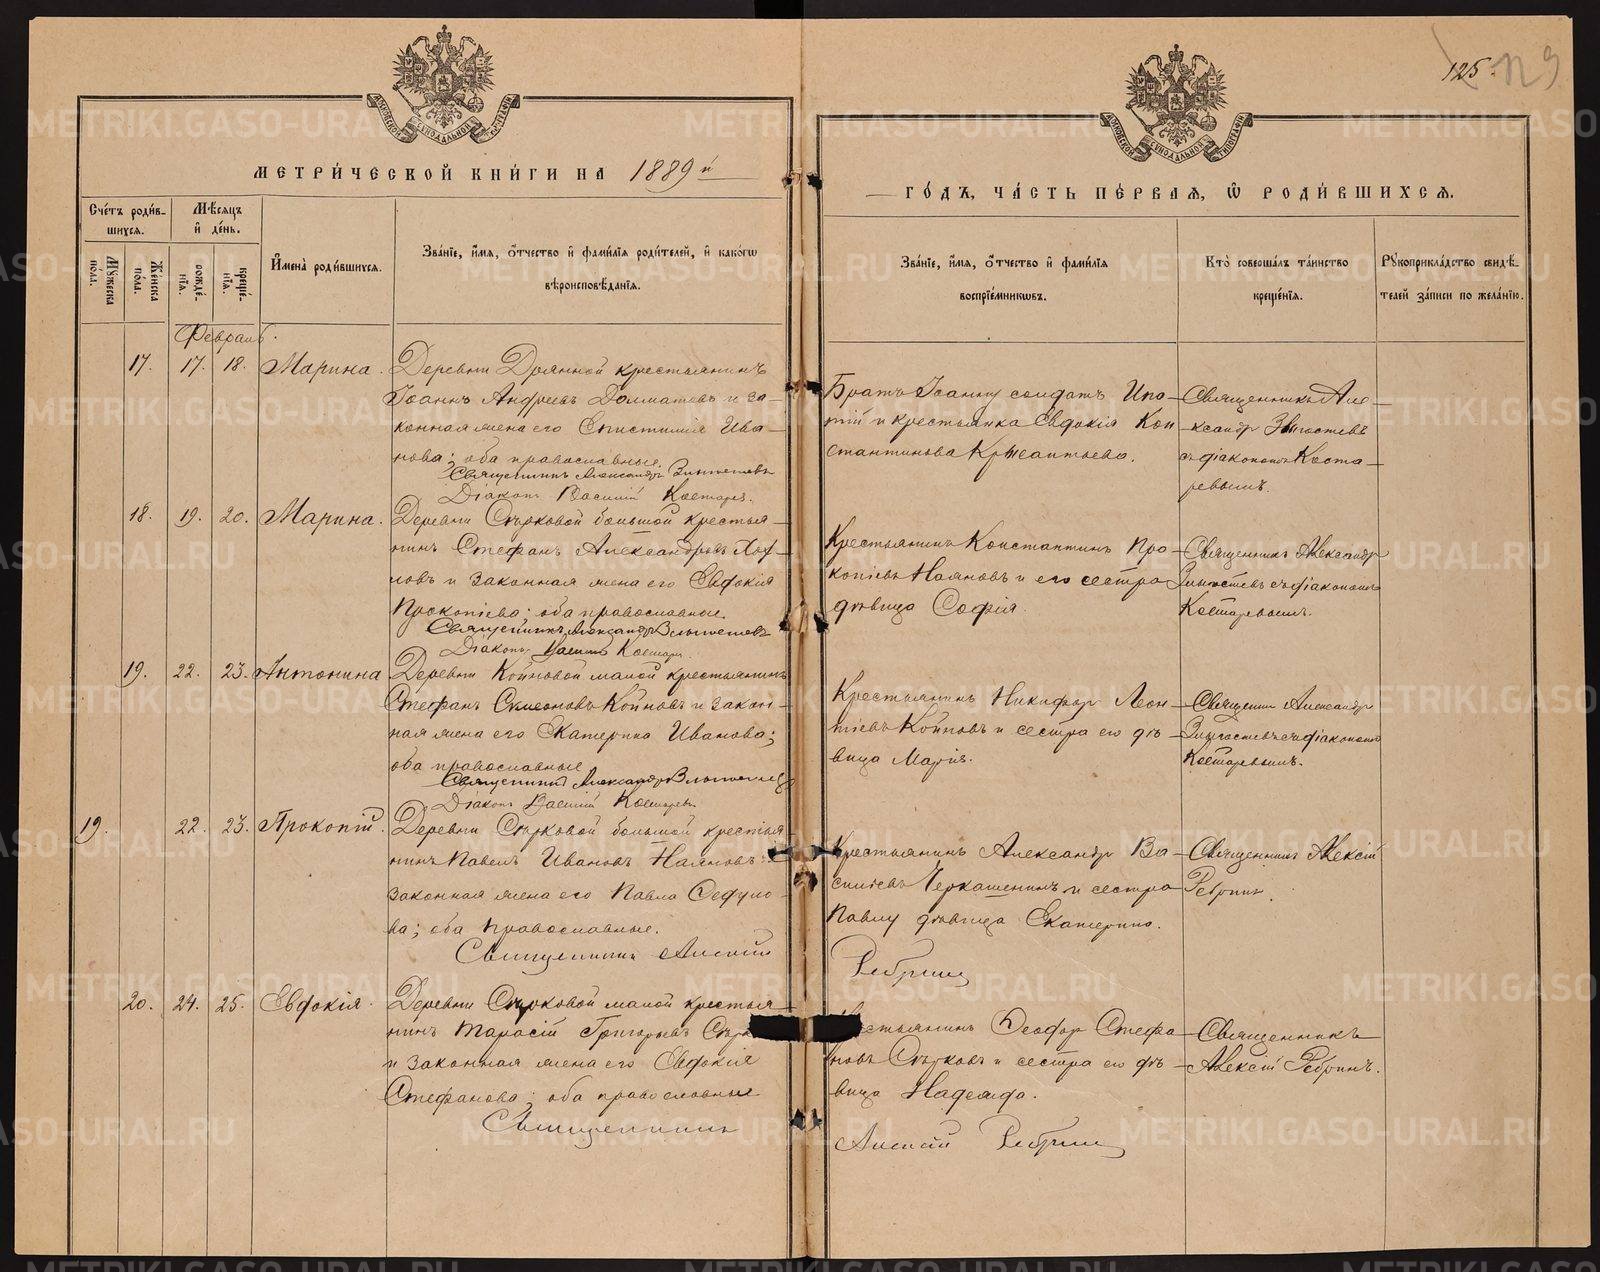 125
МЕТРИ́ЧЕСКОЙ КНИ́ГИ НА 1889 й
ГО́ДЪ, ЧА́СТЬ ПЕ́РВАЯ, Ѡ҆ РОДИ́ВШИХСЯ.
МОСКОВСКОЙ СѴНОДАЛЬНОЙ ТИПОГРАФІИ
МОСКОВСКОЙ СѴНОДАЛЬНОЙ ТИПОГРАФІИ
Сче́тъ роди́в-
шихся.
Мѣ́сяцъ
и҆ де́нь.
Мꙋ́жеска по́ла.
Же́нска по́ла.
рожде́-
нїя.
креще́-
нїя.
И҆мена̀ роди́вшихся.
Зва́нїе, и҆́мя, ѻ҆́тчество и҆ фамѝлїя роди́телей, и҆ како́гѡ
вѣроисповѣ́данїя.
Зва́нїе, и҆́мя, ѻ҆́тчество и҆ фами́лїя
воспрїе́мникѡвъ.
Кто̀ соверша́лъ та́инство
креще́нїя.
Рꙋкоприкла́дство свидѣ́-
телей за́писи по жела́нїю.
Февраль.
17. 17. 18. Марина.
Деревни Дрянной крестьянинъ
Іоаннъ Андреевъ Долматовъ и за-
конная жена его Ива-
нова; оба православные.
Священникъ Александръ
Діаконъ Василій Костарев.
Братъ Іоанну солдатъ Ипа-
тій и крестьянка Евдокія Кон
стантинова
Священникъ Але-
ксандръ
съ діакономъ Коста-
ревымъ.
18. 19. 20. Марина.
Деревни Сырковой большой крестья-
нинъ Стефанъ Александровъ
новъ и законная жена его Евдокія
Прокопіева; оба православные.
Священникъ Александръ
Діаконъ Василій Костарев.
Крестьянинъ Константинъ Про-
копіевъ Наяновъ и его сестра
дѣвица Софія.
Священникъ Александръ
съ діакономъ
Костаревымъ.
19. 22. 23. Антонина
Деревни Койновой малой крестьянинъ
Стефанъ Симеоновъ Койновъ и закон-
ная жена его Екатерина Иванова;
оба православные
Священникъ Александръ
Діаконъ Василій Костаревъ
Крестьянинъ Никифоръ Леон-
тіевъ Койновъ и сестра его дѣ-
вица Марія.
Священник Александръ
съ діакономъ
Костаревымъ.
19. 22. 23. Прокопій.
Деревни Сырковой большой крестья-
нинъ Павелъ Ивановъ Наяновъ и
законная жена его Павла Федуло-
ва; оба православные.
Священникъ Алексій
Крестьянинъ Александръ Ва-
силіевъ Черкашенинъ и сестра
Павлу дѣвица Екатерина.
Ребринъ
Священникъ Алексій
Ребринъ.
20. 24. 25. Евдокія.
Деревни Сырковой малой крестья-
нинъ Тарасій Григорьевъ
и законная жена его Евдокія
Стефанова; оба православные
Священникъ
Ѳеодоръ Стефа-
новъ Сырковъ и сестра его дѣ-
вица Надежда.
Алексій Ребринъ
Священникъ
Алексій Ребринъ.
METRIKI.GASO-URAL.RU